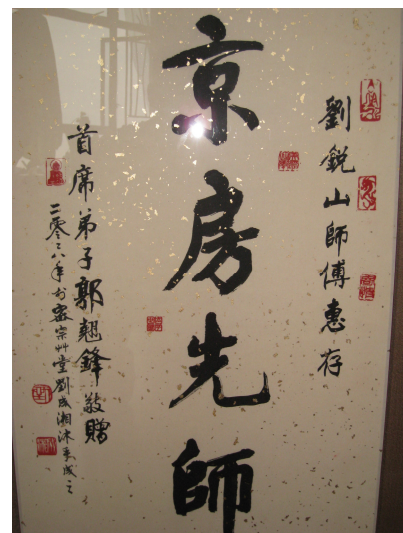 劉銳山師傅惠存
京房先師
首席弟子郭翹鋒敬贈
二零零八年於密宗艸堂劉成湘沐手成之